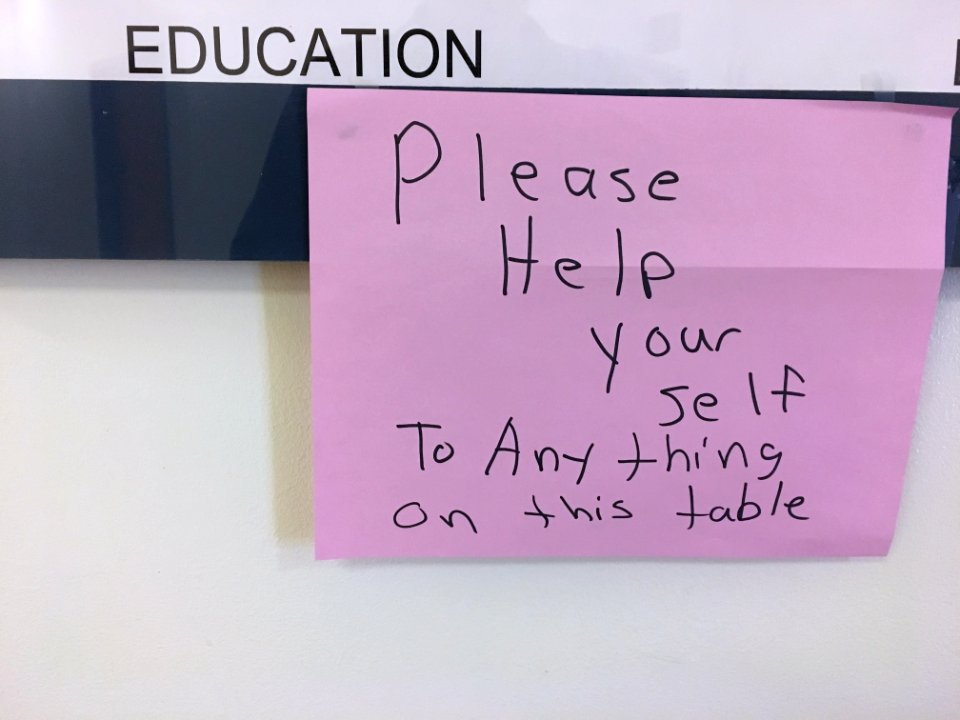 EDUCATION
Please
Help
your
self
To Any thing
on this table